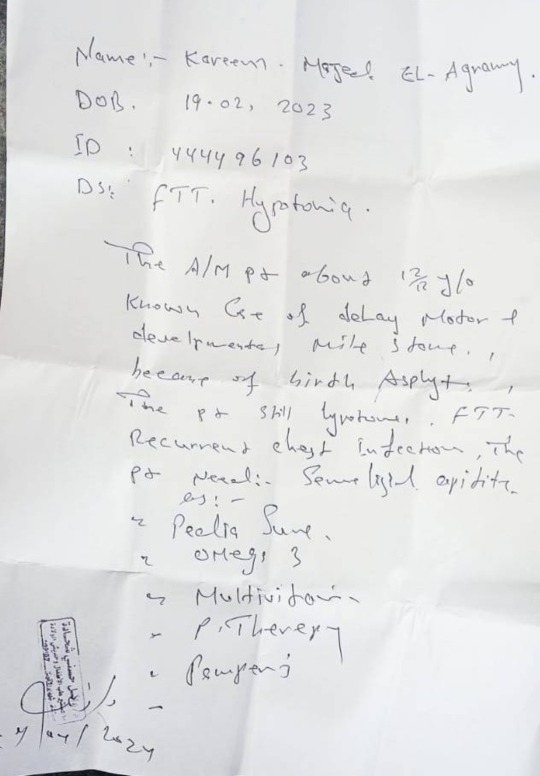 Name:- Kareem. Majeed EL-Agramy.
DOB. 19.02, 2023
ID : 444496103
DS: FTT. Hypotonia.
The A/M pt about 12/12 y/o
Known Case of delay Motor &
developmental Mile stone.,
because of birth Asphyt.,
The pt still hypotonia. FTT-
Recurrent chest Infection, The
pt need:-
as:-
Pedia Sure.
omega 3
Multivitamin
P. Therapy
Pampers
2024